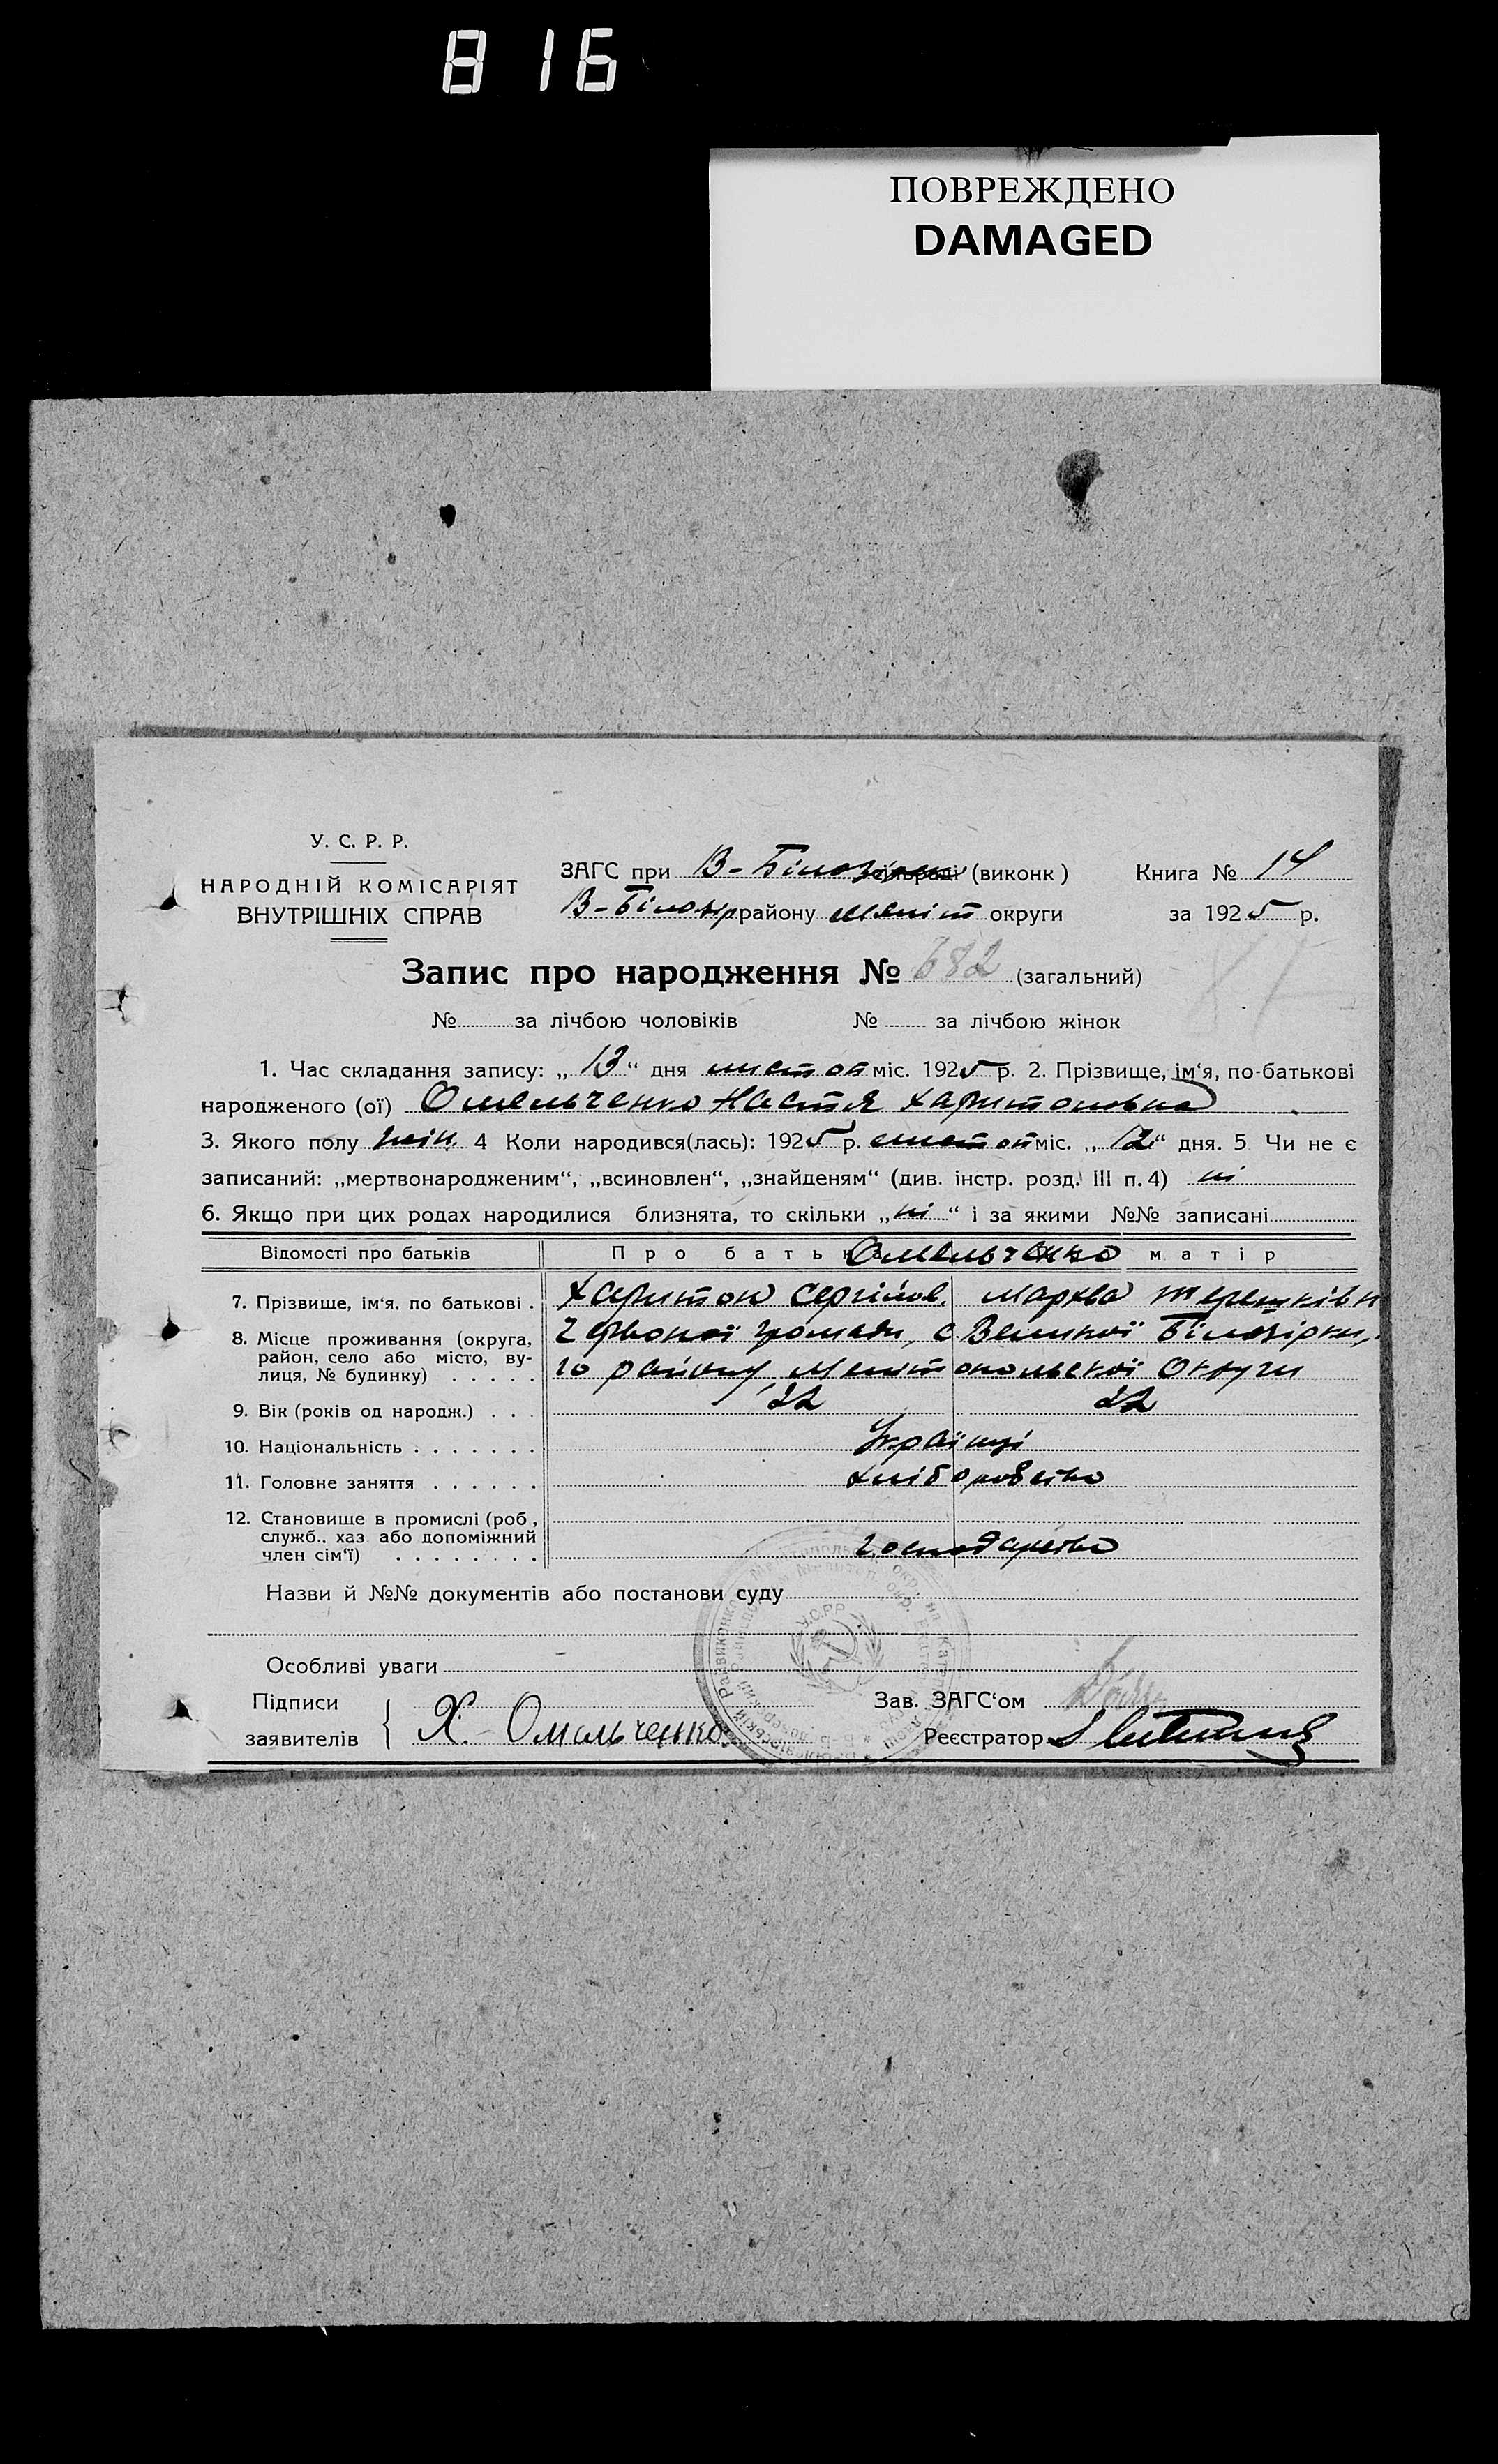 816
ПОВРЕЖДЕНО
DAMAGED
У. С. Р. Р.
НАРОДНІЙ КОМІСАРІЯТ
ВНУТРІШНІХ СПРАВ
ЗАГС при В-Білозір (виконк)
Книга № 14
В-Білозір району Меліт округи
за 1925 р.
Запис про народження № 682 (загальний)
№ за лічбою чоловіків № за лічбою жінок
1. Час складання запису: „13“ дня листоп міс. 1925 р. 2. Прізвище, ім‘я, по-батькові
народженого (ої) Омельченко Настя Харитоновна
3. Якого полу жін. 4 Коли народився(лась): 1925 р. листоп міс. „12“ дня. 5 Чи не є
записаний: „мертвонародженим“, „всиновлен“, „знайденям“ (див. інстр. розд. III п. 4) ні
6. Якщо при цих родах народилися близнята, то скільки „ні“ і за якими №№ записані
Відомості про батьків
Про батька Омельченко матір
7. Прізвище, ім‘я, по батькові . Харитон Сергійов. Марква
8. Місце проживання (округа, Червоної громади, с Великої Білозірки,
район, село або місто, ву-
лиця, № будинку) . . . . . го району Мелітопольської Округи
9. Вік (років од народж.) . . . 22 22
10. Національність . . . . . . . Українці
11. Головне заняття . . . . . . хліборобство
12. Становище в промислі (роб ,
служб.. хаз. або допоміжний
член сім‘ї) . . . . . . . . господарство
Назви й №№ документів або постанови суду
Особливі уваги
Підписи
заявителів { Х. Омельченко
Зав. ЗАГС‘ом
Реєстратор
У.С.Р.Р.